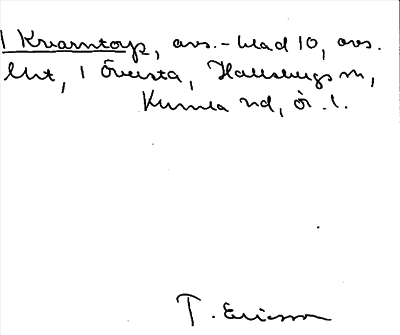 1 Kvarntorp, avs.-blad 10, avs.
litt, 1 Öveista, Hallsbergs sn,
Kumla hd, ör. l.
T. Ericsson